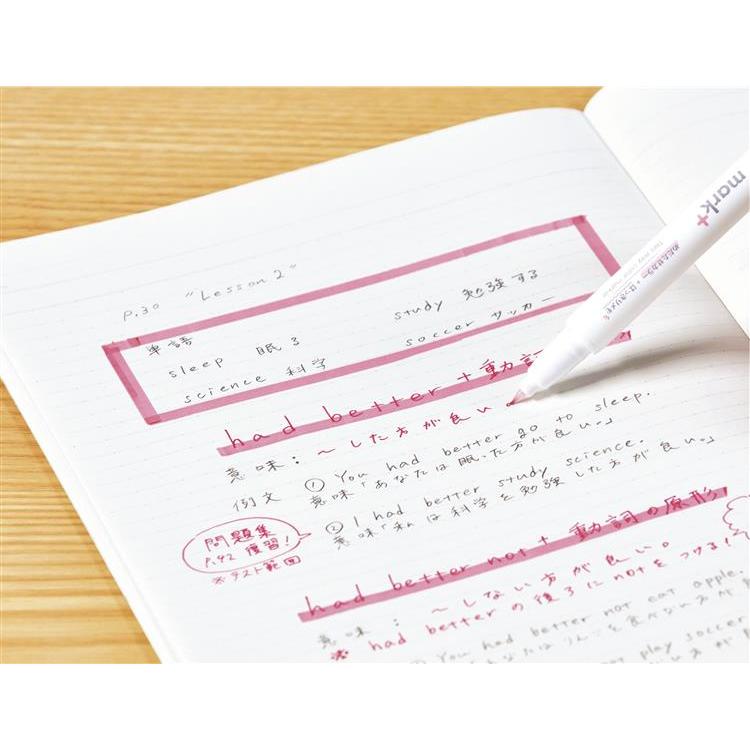 P.30 "Lesson 2"
単語
sleep 眠る
study 勉強する
science 科学
soccer サッカー
had better + 動詞
意味：～した方が良い
例文 ① You had better go to sleep.
意味「あなたは眠った方が良い。」
② I had better study science.
意味「私は科学を勉強した方が良い。」
問題集
P.42 復習!
※テスト範囲
had better not + 動詞の原形
意味：～しない方が良い。
※ had betterの後ろにnotをつける!
You had better not eat apple.
play soccer
mark+